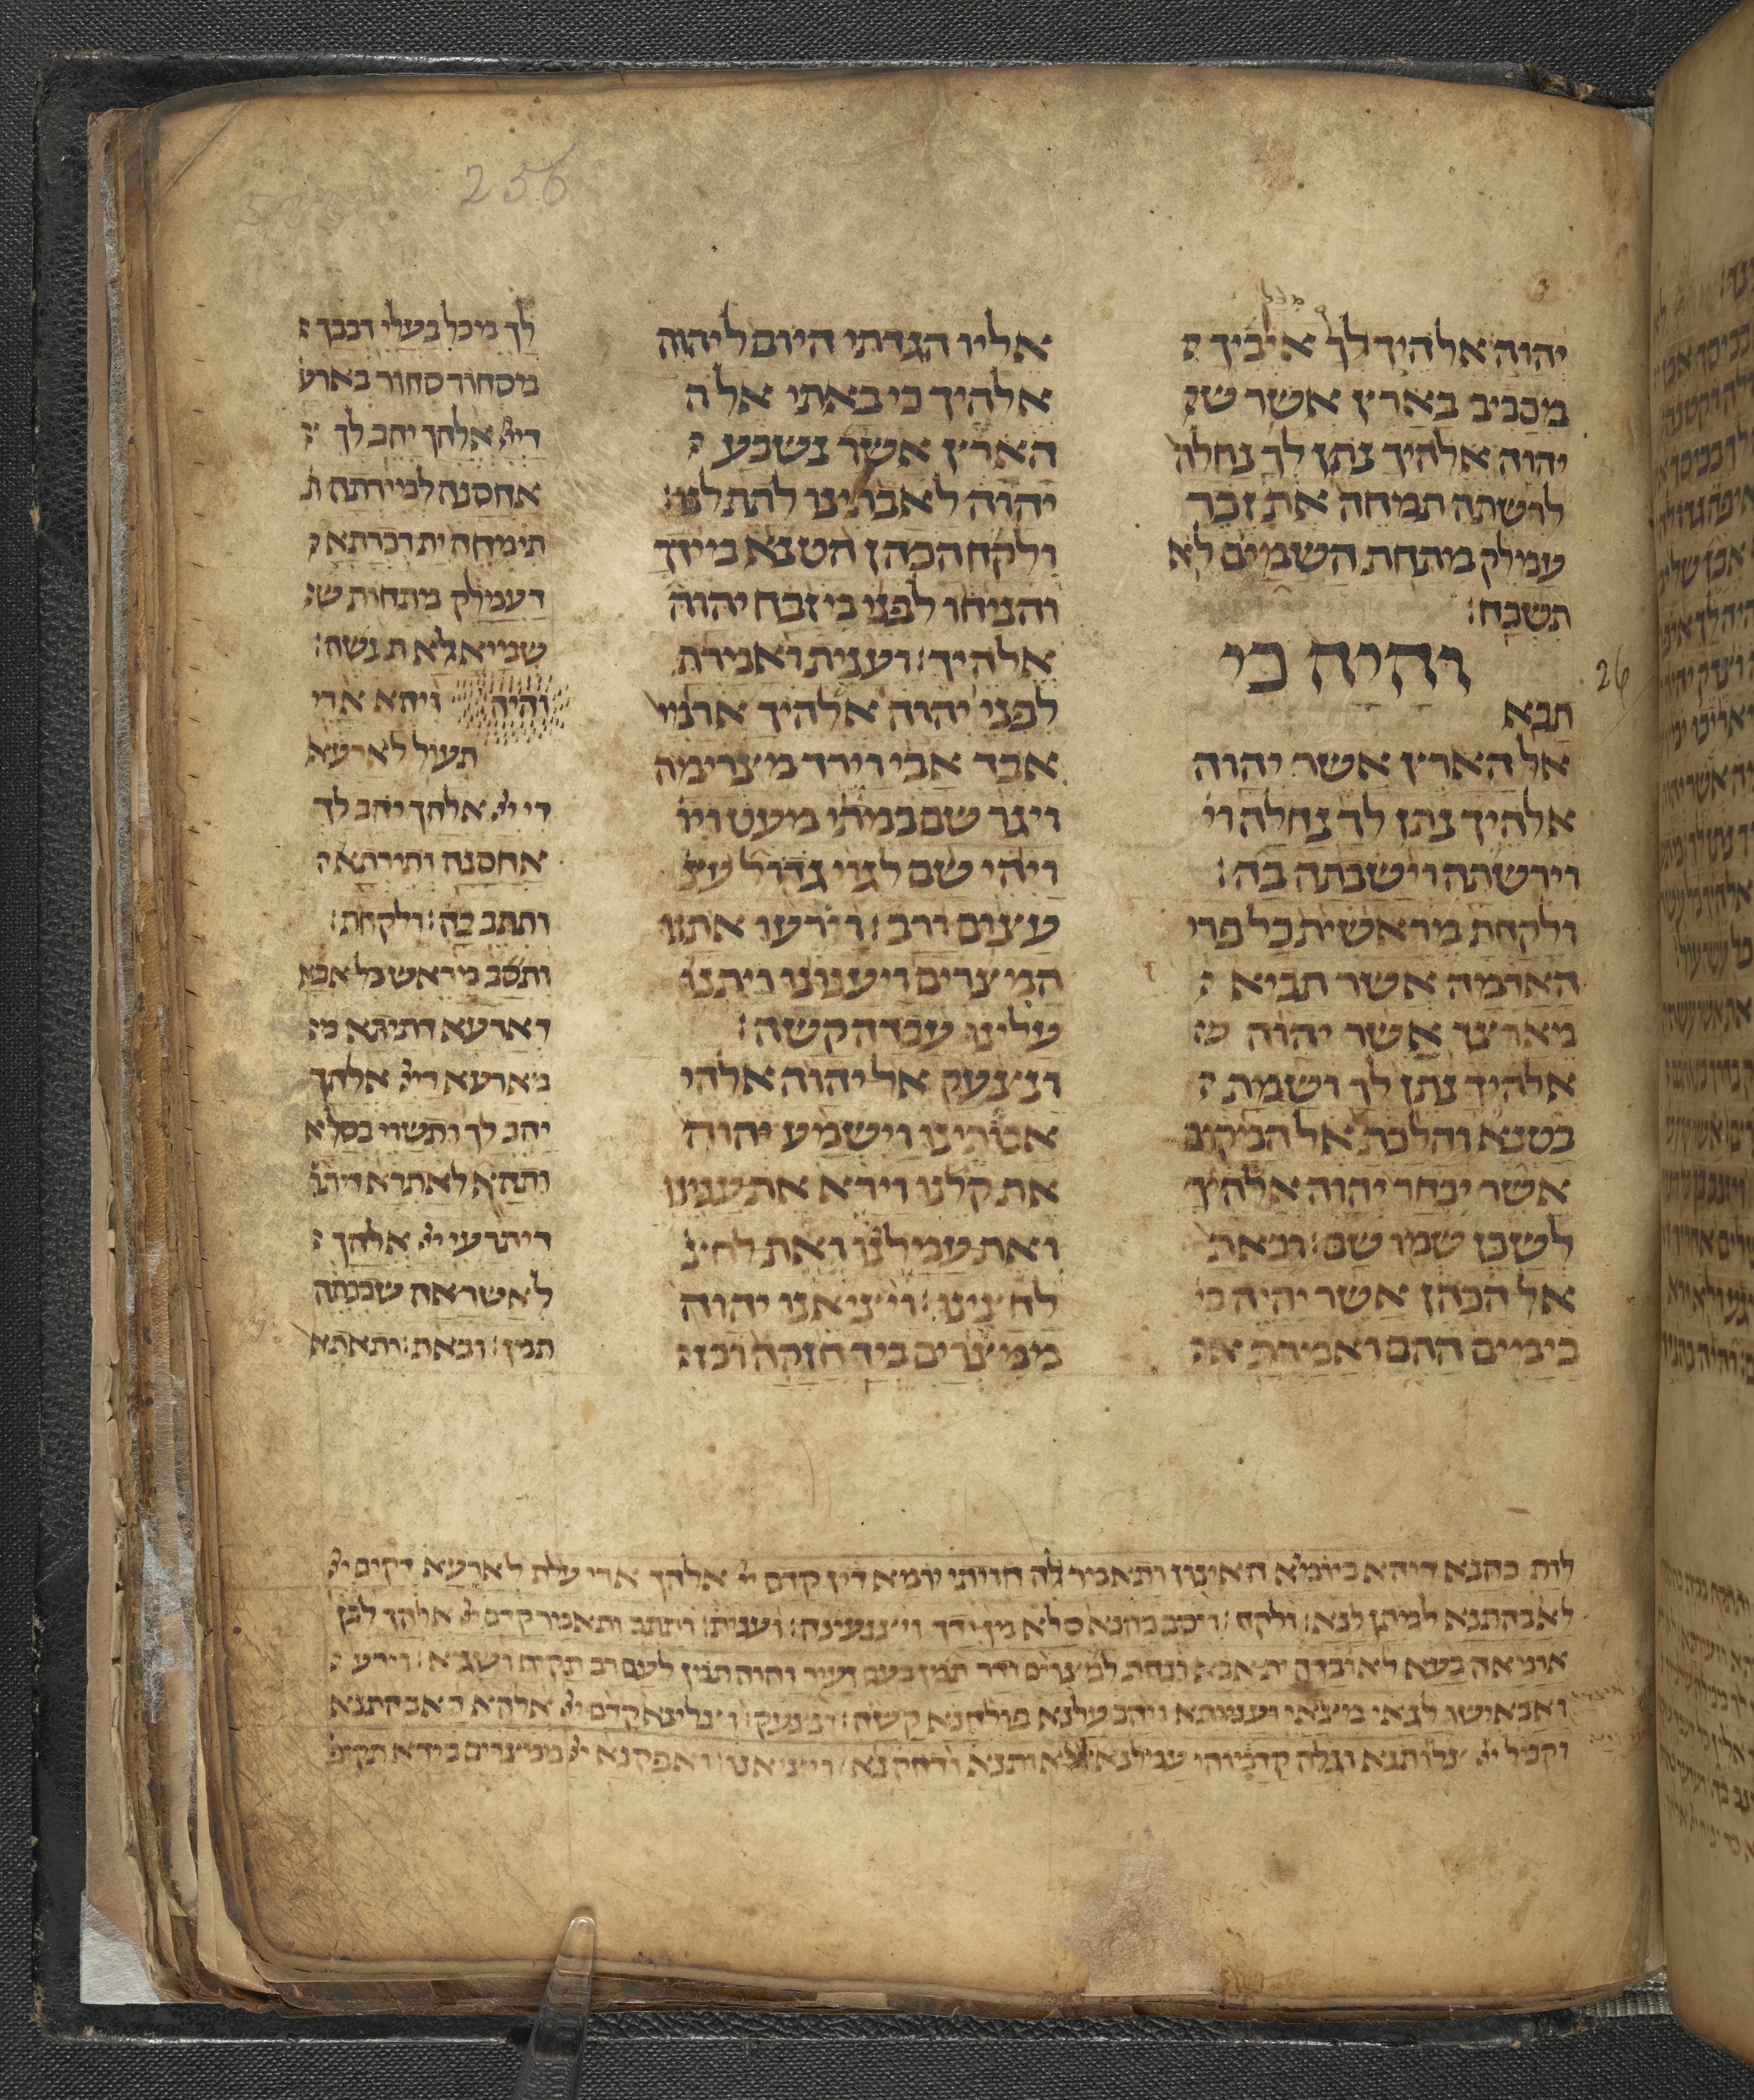 256
מכל
יהוה אלהיך לך איביך
מסביב בארץ אשר
יהוה אלהיך נתן לך נחלה
לרשתה תמחה את זכר
עמלק מתחת השמים לא
תשכח׃
והיה כי
26
תבא
אל הארץ אשר יהוה
אלהיך נתן לך נחלה
וירשתה וישבתה בה׃
ולקחת מראשית כל פרי
האדמה אשר תביא
מארצך אשר יהוה
אלהיך נתן לך ושמת
בטנא והלכת אל המקום
אשר יבחר יהוה אלהיך
לשכן שמו שם׃ ובאת
אל הכהן אשר יהיה
בימים ההם ואמרת
אליו הגדתי היום ליהוה
אלהיך כי באתי אל ה
הארץ אשר נשבע
יהוה לאבתינו לתת לנו׃
ולקח הכהן הטנא מידך
והניחו לפני מזבח יהוה
אלהיך׃ וענית ואמרת
לפני יהוה אלהיך ארמי
אבד אבי וירד מצרימה
ויגר שם במתי מעט
ויהי שם לגוי גדול
עצום ורב׃ וירעו אתנו
המצרים ויענונו ויתנו
עלינו עבדה קשה׃
ונצעק אל יהוה אלהי
אבתינו וישמע יהוה
את קלנו וירא את ענינו
ואת עמלנו ואת
לחצינו׃ ויוציאנו יהוה
ממצרים ביד חזקה
לך מכל בעלי דבבך
מסחור סחור בארע
אלהך יהב לך
אחסנה למירתה
תימחה ית דכרנא
דעמלק מתחות
שמיא לא תנשה׃
והיה ויהא ארי
תעול לארעא
אלהך יהב לך
אחסנה ותירתא
ותתב בה׃ ולקחת׃
ותסב מראש כל אבא
דארעא
מארעא אלהך
יהב לך ותשוי בסלא
ותהך לאתרא
דיתרעי אלהך
לאשראה שכנתה
תמן׃ ובאת׃ ותאתא
לות כהנא דיהא ביומיא האינון ותאמר לה חויתי יומא דין קדם אלהך ארי עלת לארעא דקיים
לאבהתנא למיתן לנא׃ ולקח׃ ויסב כהנא סלא מן ידך ויצנעינה׃ וענית׃ ותתב ותאמר קדם אלהך לבן
ארמאה בעא לאובדה ית אבא ונחת למצרים ודר תמן בעם זעיר והוה תמן לעם רב תקיף וסגיא׃ וירעו
ואבאישו לנא מצראי ועניונא ויהבו עלנא פולחנא קשיא׃ ונצעק׃ וצלינא קדם אלהא דאבהתנא
וקביל צלותנא וגלה קדמוהי עמלנא וליאותנא ודחקנא׃ ויוציאנו׃ ואפקנא ממצרים בידא תקיפא